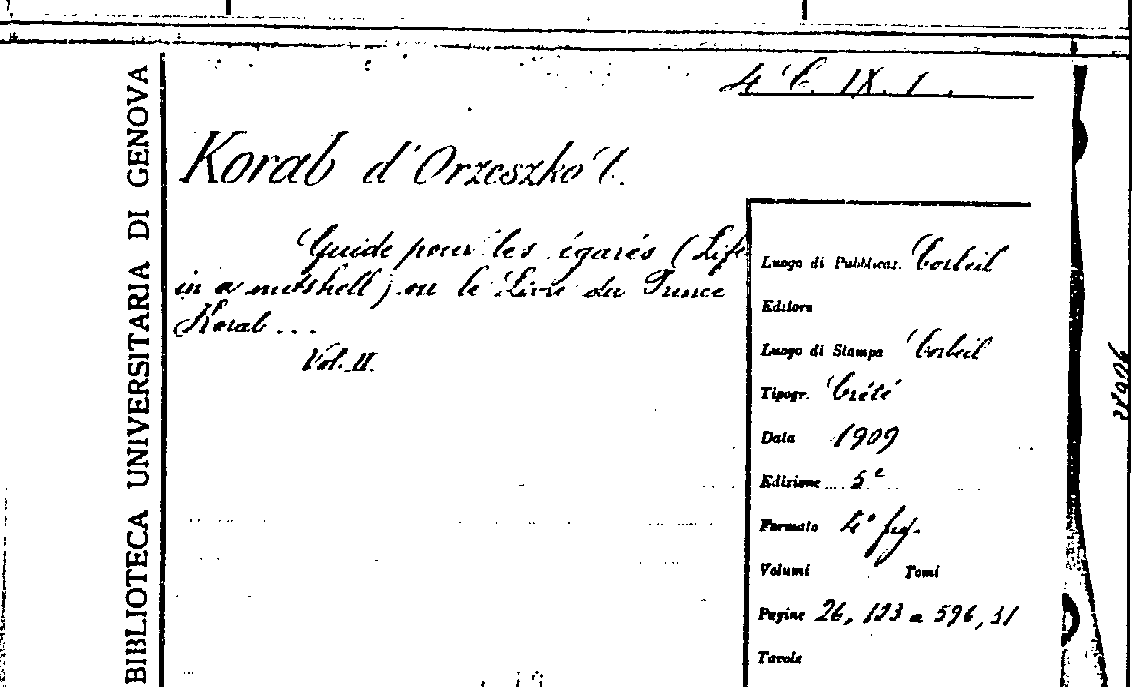 BIBLIOTECA UNIVERSITARIA DI GENOVA
4 C. IX. 1.
Korab d'Orzeszko T.
Guide pour les égarés (Life
in a nutshell) ou le Livre du Prince
Korab ...
Vol. II.
Luogo di Pubblicaz. Corbeil
Editore
Luogo di Stampa Corbeil
Tipogr. Crété
Data 1909
Edizione 5e
Formato 4° fig.
Volumi Tomi
Pagine 26, 123 a 596, 31
Tavole